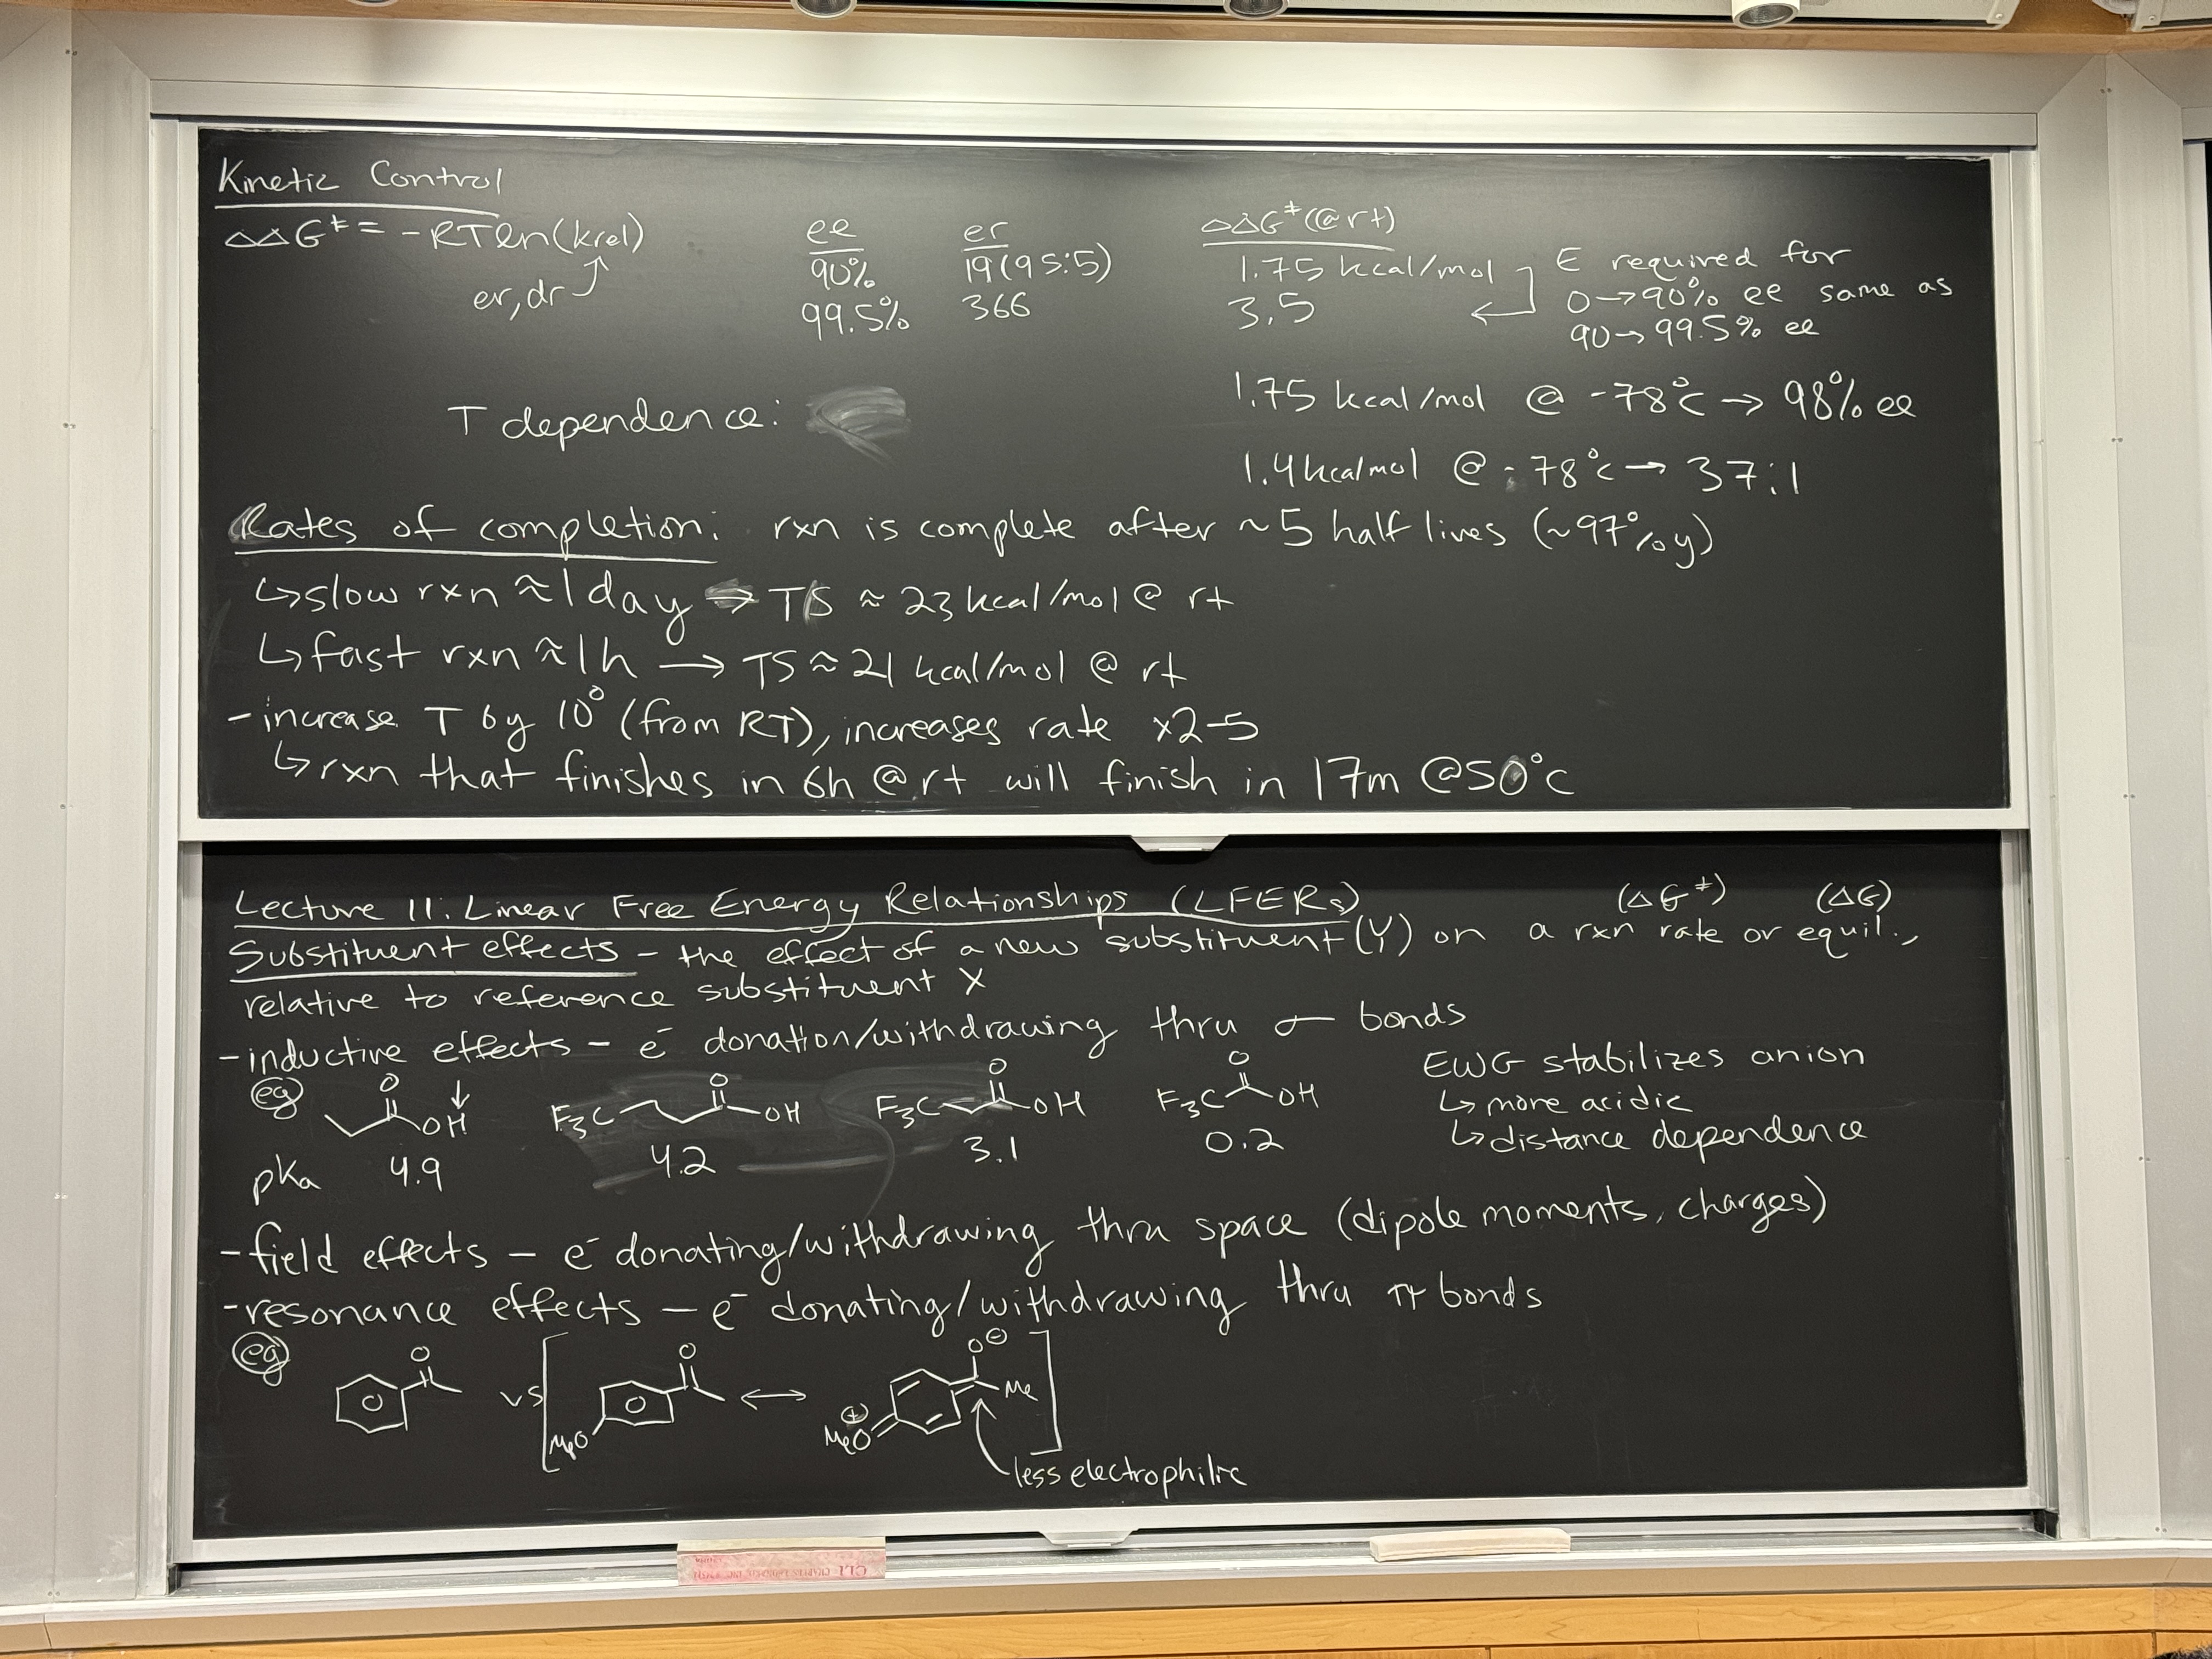 Kinetic Control
ΔΔG‡ = -RTln(krel)
er, dr
ee er ΔΔG‡(@rt)
90% 19(95:5) 1.75 kcal/mol
99.5% 366 3.5
E required for
0→90% ee same as
90→99.5% ee
T dependence:
1.75 kcal/mol @ -78°C → 98% ee
1.4 kcalmol @ -78°C → 37:1
Rates of completion: rxn is complete after ~5 half lives (~97% y)
↳slow rxn ≈ 1 day → TS ≈ 23 kcal/mol @ rt
↳fast rxn ≈ 1h → TS ≈ 21 kcal/mol @ rt
- increase T by 10° (from RT), increases rate x2-5
↳rxn that finishes in 6h @rt will finish in 17m @50°C
Lecture 11: Linear Free Energy Relationships (LFERs)
(ΔG‡) (ΔG)
Substituent effects - the effect of a new substituent (Y) on a rxn rate or equil.,
relative to reference substituent X
- inductive effects - e⁻ donation/withdrawing thru σ bonds
eg
O OH
F₃C O OH
F₃C O OH
F₃C O OH
pKa 4.9 4.2 3.1 0.2
EWG stabilizes anion
↳ more acidic
↳distance dependence
- field effects - e⁻ donating/withdrawing thru space (dipole moments, charges)
- resonance effects - e⁻ donating/withdrawing thru π bonds
eg
O vs [ O MeO ↔ O⊖ Me ⊕ MeO ]
less electrophilic